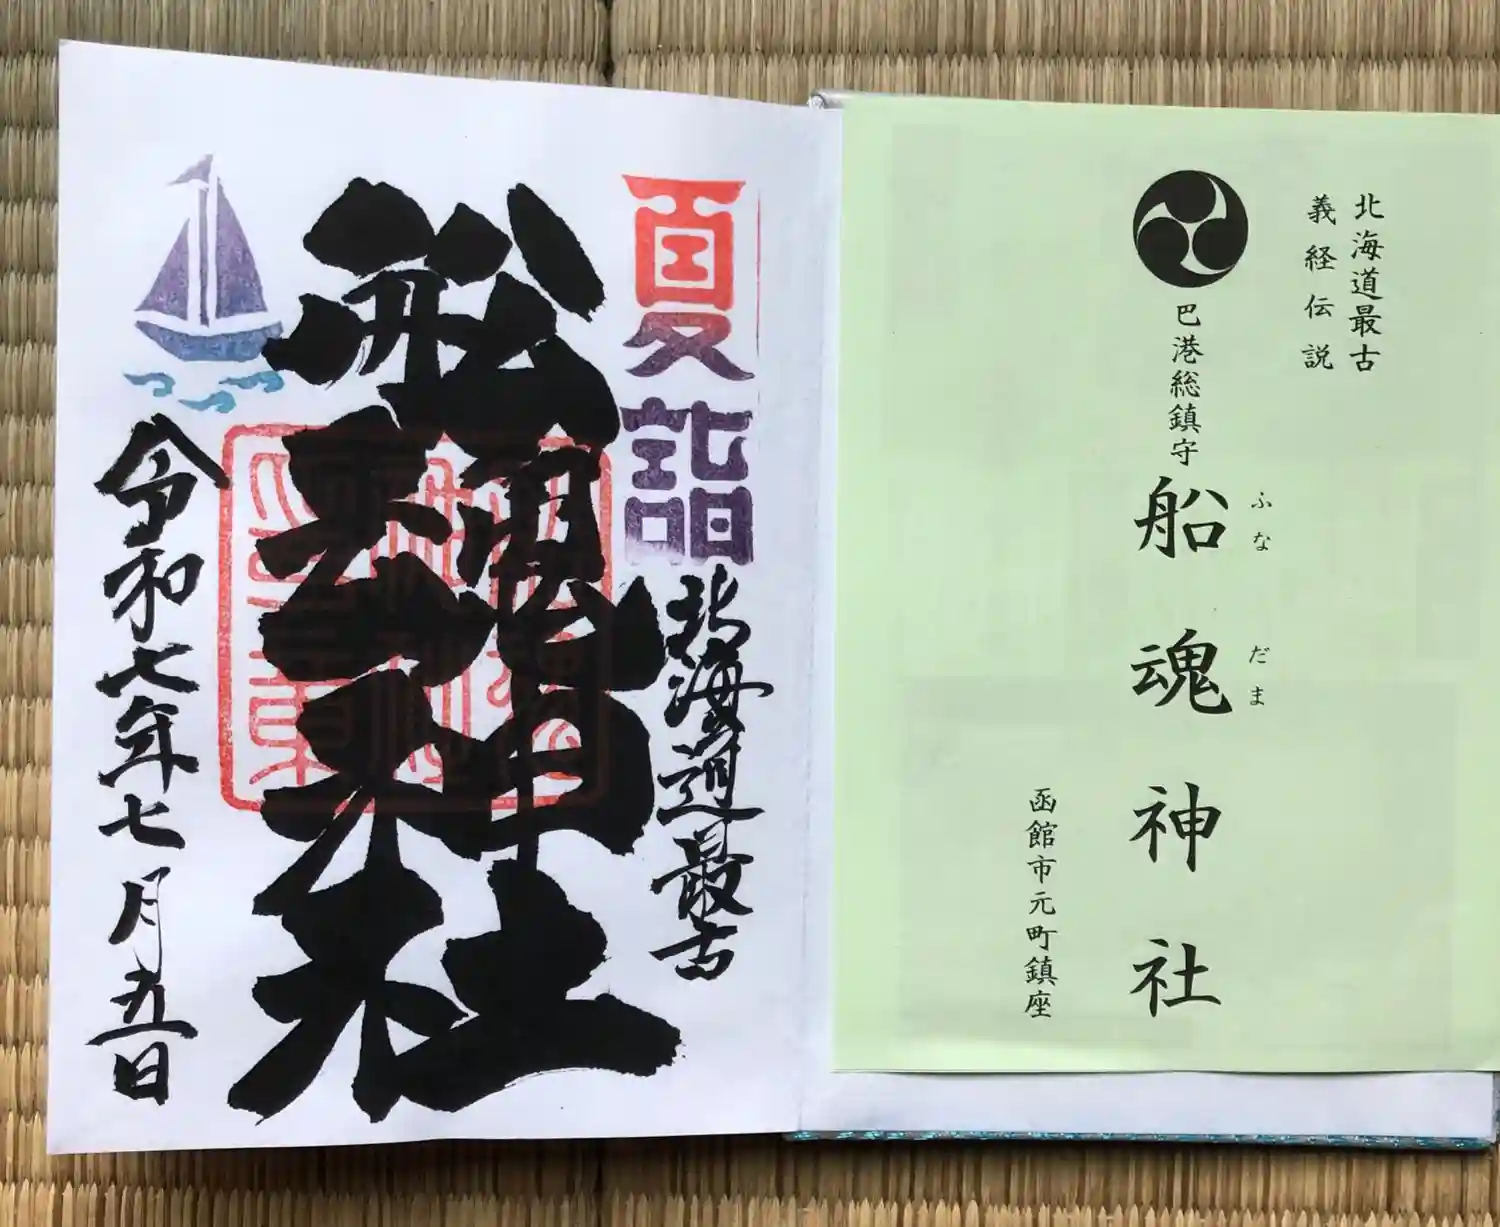 北海道最古
義経伝説
巴港総鎮守
船魂神社
ふなだま
函館市元町鎮座
夏詣
北海道最古
船魂神社
令和七年七月五日